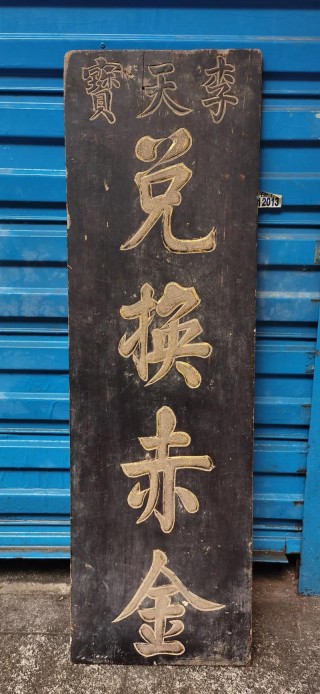 李天寶
兌換赤金
12013